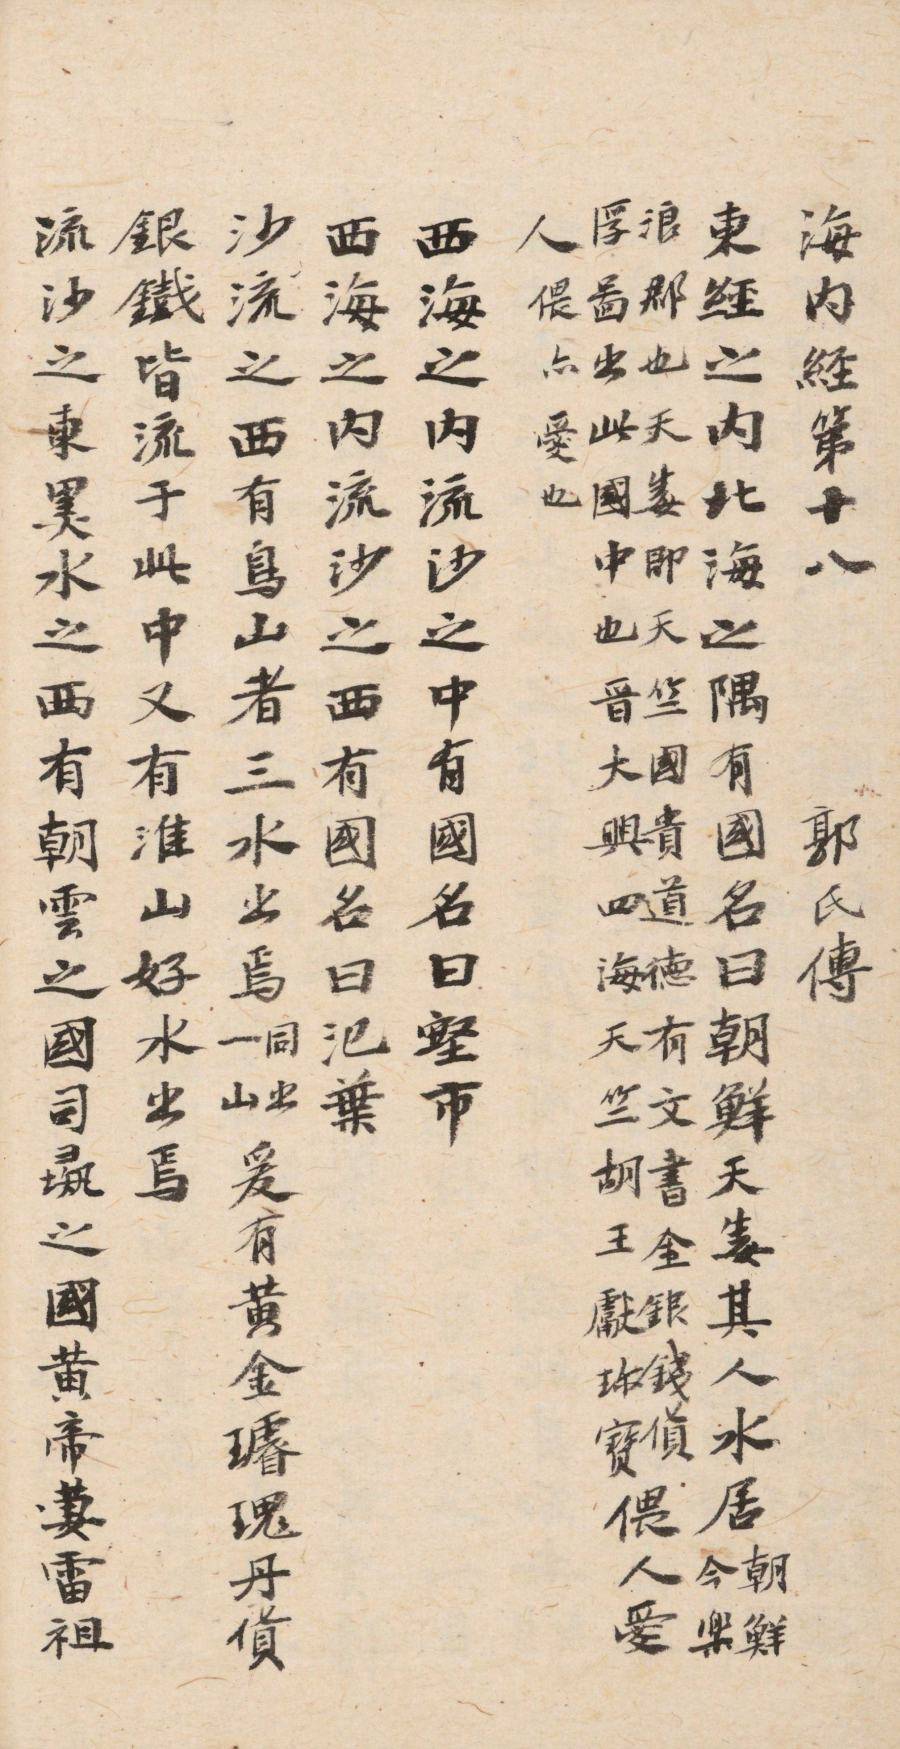 海内經第十八 郭氏傳
東經之内北海之隅有國名曰朝鮮天毒其人水居朝鮮今樂
浪郡也天毒即天竺國貴道德有文書金銀錢貨
浮圖出此國中也晉大興四海天竺胡王獻珎寶偎人愛
人偎亦愛也
西海之内流沙之中有國名曰壑市
西海之内流沙之西有國名曰氾葉
沙流之西有鳥山者三水出焉同出一山爰有黄金璿瑰丹貨
銀鐵皆流于此中又有淮山好水出焉
流沙之東黑水之西有朝雲之國司彘之國黄帝妻雷祖